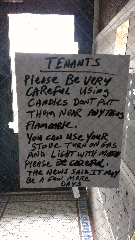 TENANTS
Please Be very
careful using
candles Dont put
them near anything
flamable.
you can use your
stove turn on gas
and light with match
Please be careful.
The news said it may
be a few more
days